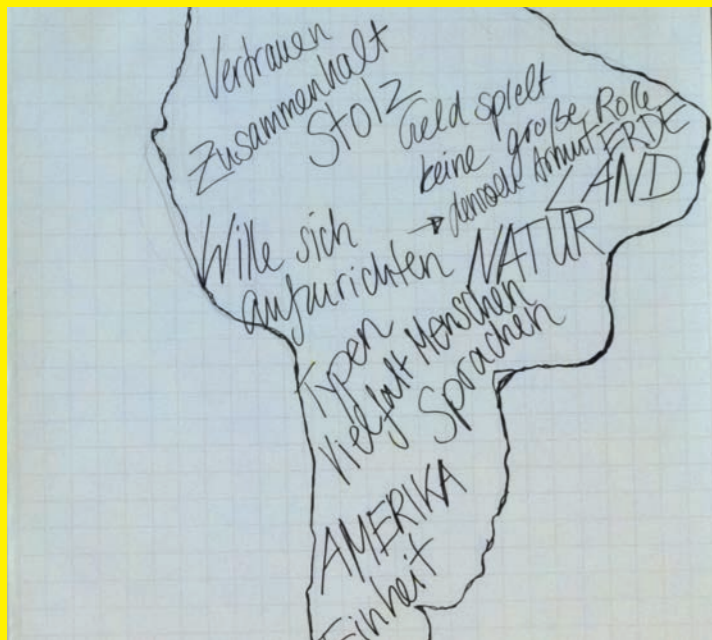 Vertrauen
Zusammenhalt
Stolz
Geld spielt
keine große Rolle
→ dennoch Armut
ERDE
LAND
NATUR
Wille sich
aufzurichten
Typen
Vielfalt Menschen
Sprachen
AMERIKA
Einheit